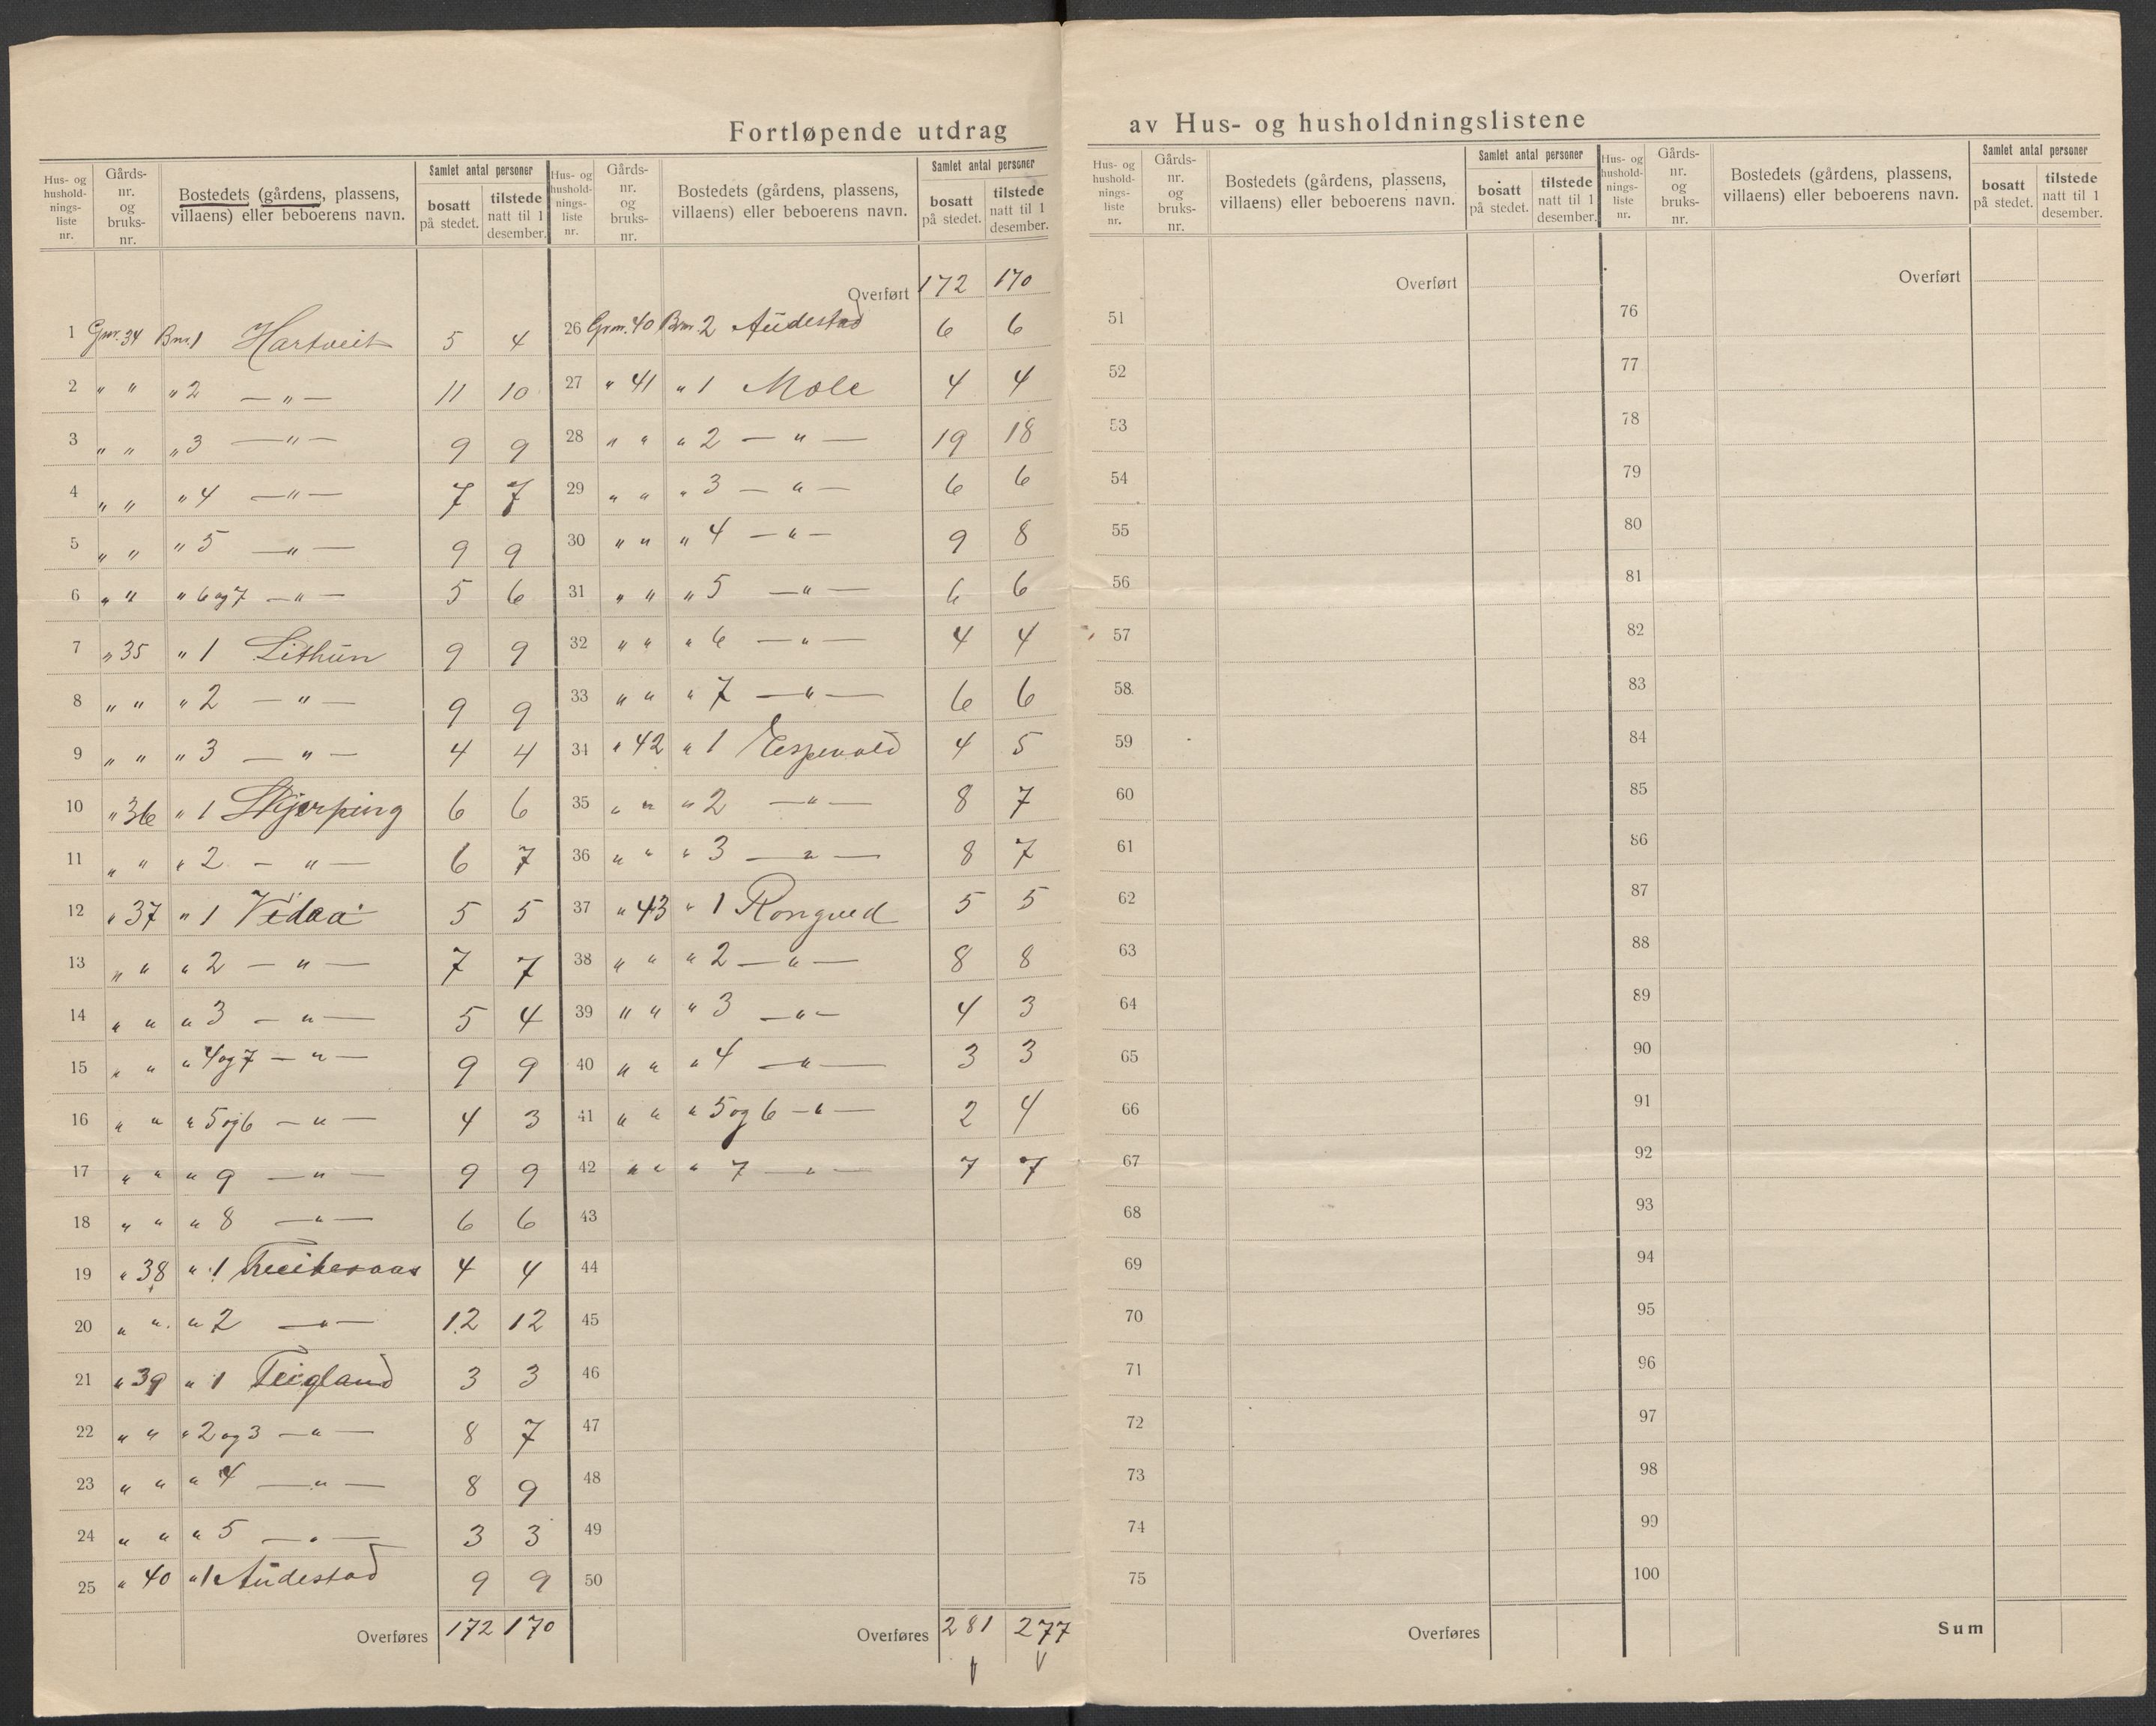 Fortløpende utdrag av Hus- og husholdningslistene
Hus- og hushold-nings-liste nr. | Gårds-nr. og bruks-nr. | Bostedets (gårdens, plassens, villaens) eller beboerens navn. | Samlet antal personer | bosatt på stedet. | tilstede natt til 1 desember.
1 Gnr. 34 Bnr. 1 Hartveit 5 4
2 " " " 2 — " — 11 10
3 " " " 3 — " — 9 9
4 " " " 4 — " — 7 7
5 " " " 5 — " — 9 9
6 " " " 6 og 7 — " — 5 6
7 " 35 " 1 Lithun 9 9
8 " " " 2 — " — 9 9
9 " " " 3 — " — 4 4
10 " 36 " 1 Skjerping 6 6
11 " " " 2 — " — 6 7
12 " 37 " 1 Vedaa 5 5
13 " " " 2 — " — 7 7
14 " " " 3 — " — 5 4
15 " " " 4 og 7 — " — 9 9
16 " " " 5 og 6 — " — 4 3
17 " " " 9 — " — 9 9
18 " " " 8 — " — 6 6
19 " 38 " 1 4 4
20 " " " 2 — " — 12 12
21 " 39 " 1 Teigland 3 3
22 " " " 2 og 3 — " — 8 7
23 " " " 4 — " — 8 9
24 " " " 5 — " — 3 3
25 " 40 " 1 Audestad 9 9
Overføres 172 170
Hus- og hushold-nings-liste nr. | Gårds-nr. og bruks-nr. | Bostedets (gårdens, plassens, villaens) eller beboerens navn. | Samlet antal personer | bosatt på stedet. | tilstede natt til 1 desember.
Overført 172 170
26 Gnr. 40 Bnr. 2 Audestad 6 6
27 " 41 " 1 Mæle 4 4
28 " " " 2 — " — 19 18
29 " " " 3 — " — 6 6
30 " " " 4 — " — 9 8
31 " " " 5 — " — 6 6
32 " " " 6 — " — 4 4
33 " " " 7 — " — 6 6
34 " 42 " 1 Espevold 4 5
35 " " " 2 — " — 8 7
36 " " " 3 — " — 8 7
37 " 43 " 1 Rongved 5 5
38 " " " 2 — " — 8 8
39 " " " 3 — " — 4 3
40 " " " 4 — " — 3 3
41 " " " 5 og 6 — " — 2 4
42 " " " 7 — " — 7 7
43
44
45
46
47
48
49
50
Overføres 281 277
Hus- og hushold-nings-liste nr. | Gårds-nr. og bruks-nr. | Bostedets (gårdens, plassens, villaens) eller beboerens navn. | Samlet antal personer | bosatt på stedet. | tilstede natt til 1 desember.
Overført
51
52
53
54
55
56
57
58
59
60
61
62
63
64
65
66
67
68
69
70
71
72
73
74
75
Overføres
Hus- og hushold-nings-liste nr. | Gårds-nr. og bruks-nr. | Bostedets (gårdens, plassens, villaens) eller beboerens navn. | Samlet antal personer | bosatt på stedet. | tilstede natt til 1 desember.
Overført
76
77
78
79
80
81
82
83
84
85
86
87
88
89
90
91
92
93
94
95
96
97
98
99
100
Sum